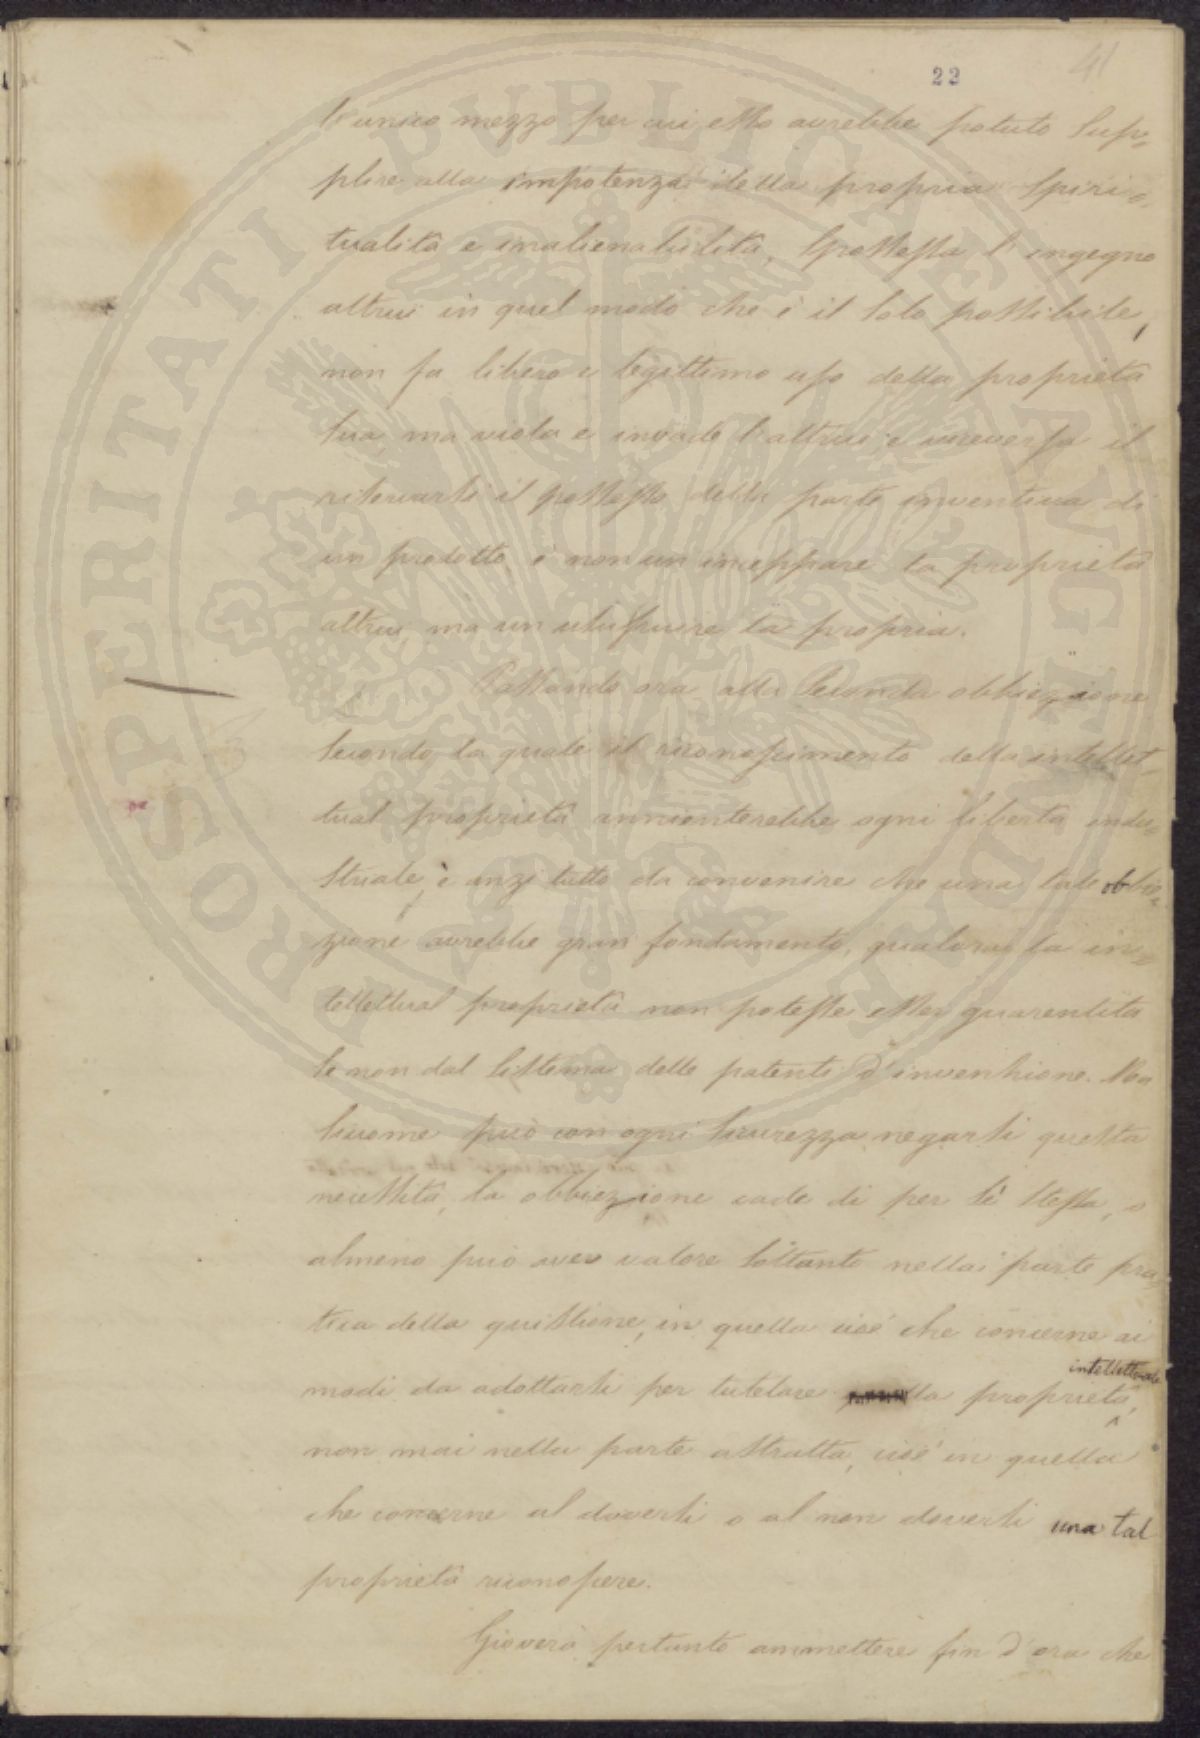 22
41
l'unico mezzo per cui esso avrebbe potuto sup=
plire alla impotenza della propria spiri=
tualità e inalienabilità, spossessa l'ingegno
altrui in quel modo che è il solo possibile,
non fa libero e legittimo uso della proprietà
sua, ma viola e invade l'altrui; e viceversa il
riservarsi il possesso della parte inventiva di
un prodotto, è non un inceppare la proprietà
altrui, ma un usufruire la propria.
Passando ora alla seconda obbiezione
secondo la quale il riconoscimento della intellet=
tual proprietà annienterebbe ogni libertà indu=
striale, è anzi tutto da convenire che una tale obbie=
zione avrebbe gran fondamento, qualora la in=
tellettual proprietà non potesse esser guarentita
se non dal sistema delle patenti d'invenzione. Ma
siccome può con ogni sicurezza negarsi questa
necessità, la obbiezione cade di per sè stessa, o
almeno può aver valore soltanto nella parte pra=
tica della quistione, in quella cioè che concerne ai
intellettuale
modi da adottarsi per tutelare la proprietà,
non mai nella parte astratta, cioè in quella
che concerne al doversi o al non doversi una tal
proprietà riconoscere.
Gioverà pertanto ammettere fin d'ora che
PUBLICAE AUGENDAE PROSPERITATI